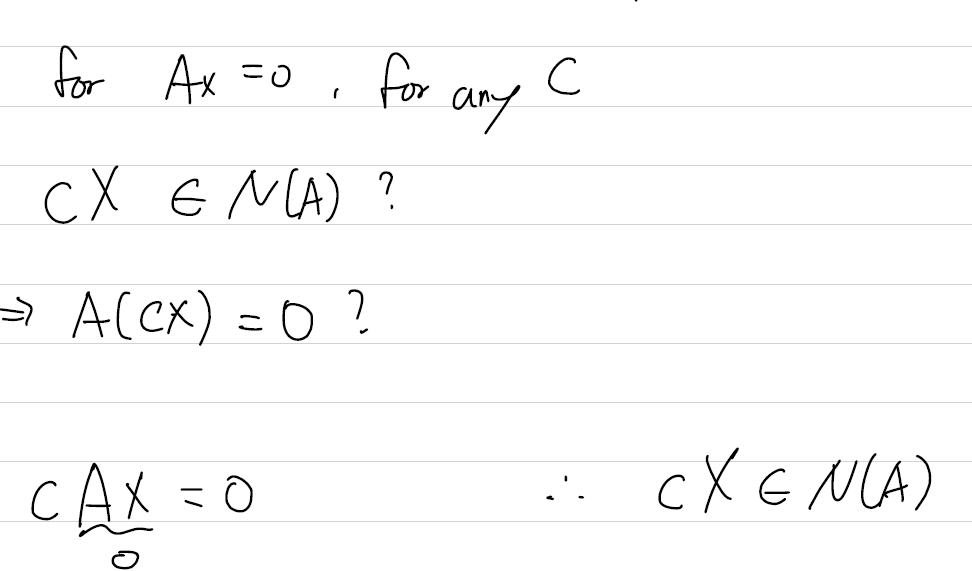 for Ax = 0, for any C
CX ∈ N(A) ?
⇒ A(CX) = 0 ?
CAX = 0 ∴ CX ∈ N(A)
0